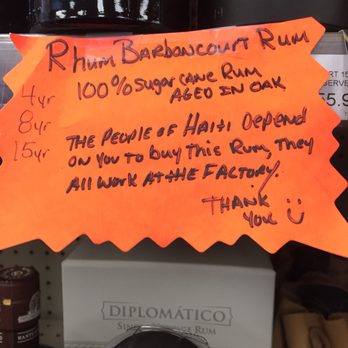 Rhum Barboncourt Rum
100% Sugar Cane Rum
Aged in Oak
4yr
8yr
15yr
The People of Haiti Depend
on you to buy this Rum, They
All work at the Factory.
Thank
you
RT 15
SERVE
55.9
DIPLOMÁTICO
Rum